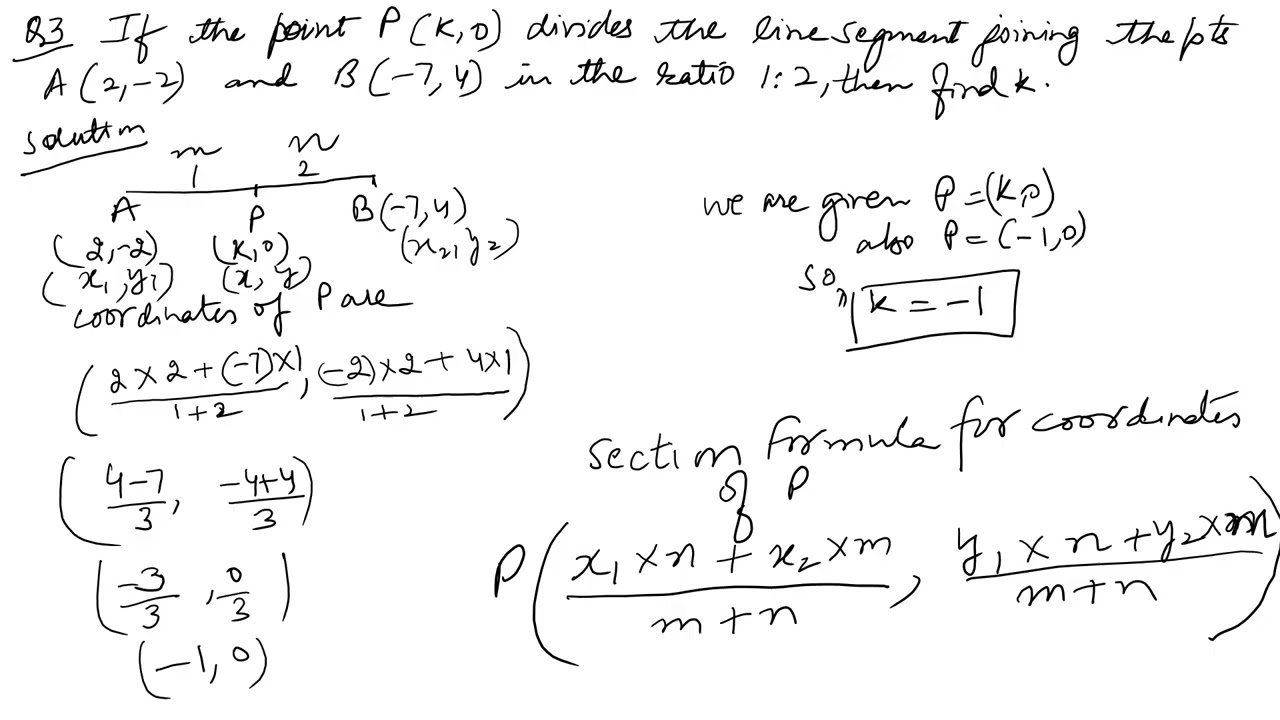 Q3 If the point P(k,0) divides the line segment joining the pts
A(2,-2) and B(-7,4) in the ratio 1:2, then find k.
Solution
m n
1 2
A P B(-7,4)
(2,-2) (k,0) (x₂,y₂)
(x₁,y₁) (x,y)
coordinates of P are
(2×2+(-7)×1/1+2, (-2)×2+4×1/1+2)
(4-7/3, -4+4/3)
(-3/3, 0/3)
(-1,0)
we are given P=(k,0)
also P=(-1,0)
so, k=-1
Section formula for coordinates
of P
P(x₁×n+x₂×m/m+n, y₁×n+y₂×m/m+n)